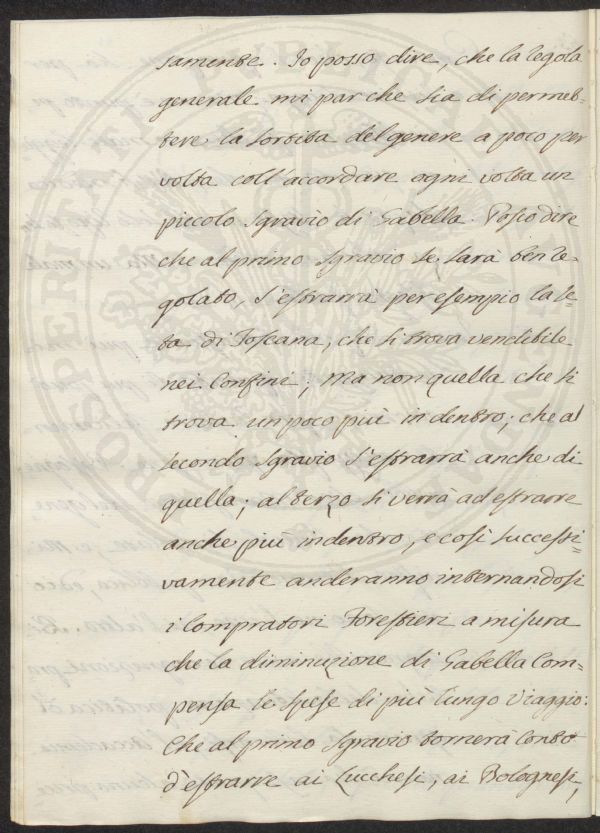 samente. Io posso dire, che la regola
generale mi par che sia di permet=
tere la sortita del genere a poco per
volta coll'accordare ogni volta un
piccolo sgravio di Gabella. Posso dire
che al primo sgravio se sarà ben re=
golato, s'estrarrà per esempio la se=
ta di Toscana, che si trova vendibile
nei Confini; ma non quella che si
trova un poco più in dentro; che al
secondo sgravio s'estrarrà anche di
quella; al terzo si verrà ad estrarre
anche più indentro, e così successi=
vamente anderanno internandosi
i Compratori Forestieri a misura
che la diminuzione di Gabella Com=
pensa le spese di più lungo viaggio:
Che al primo sgravio tornerà Conto
d'estrarre ai Lucchesi, ai Bolognesi,